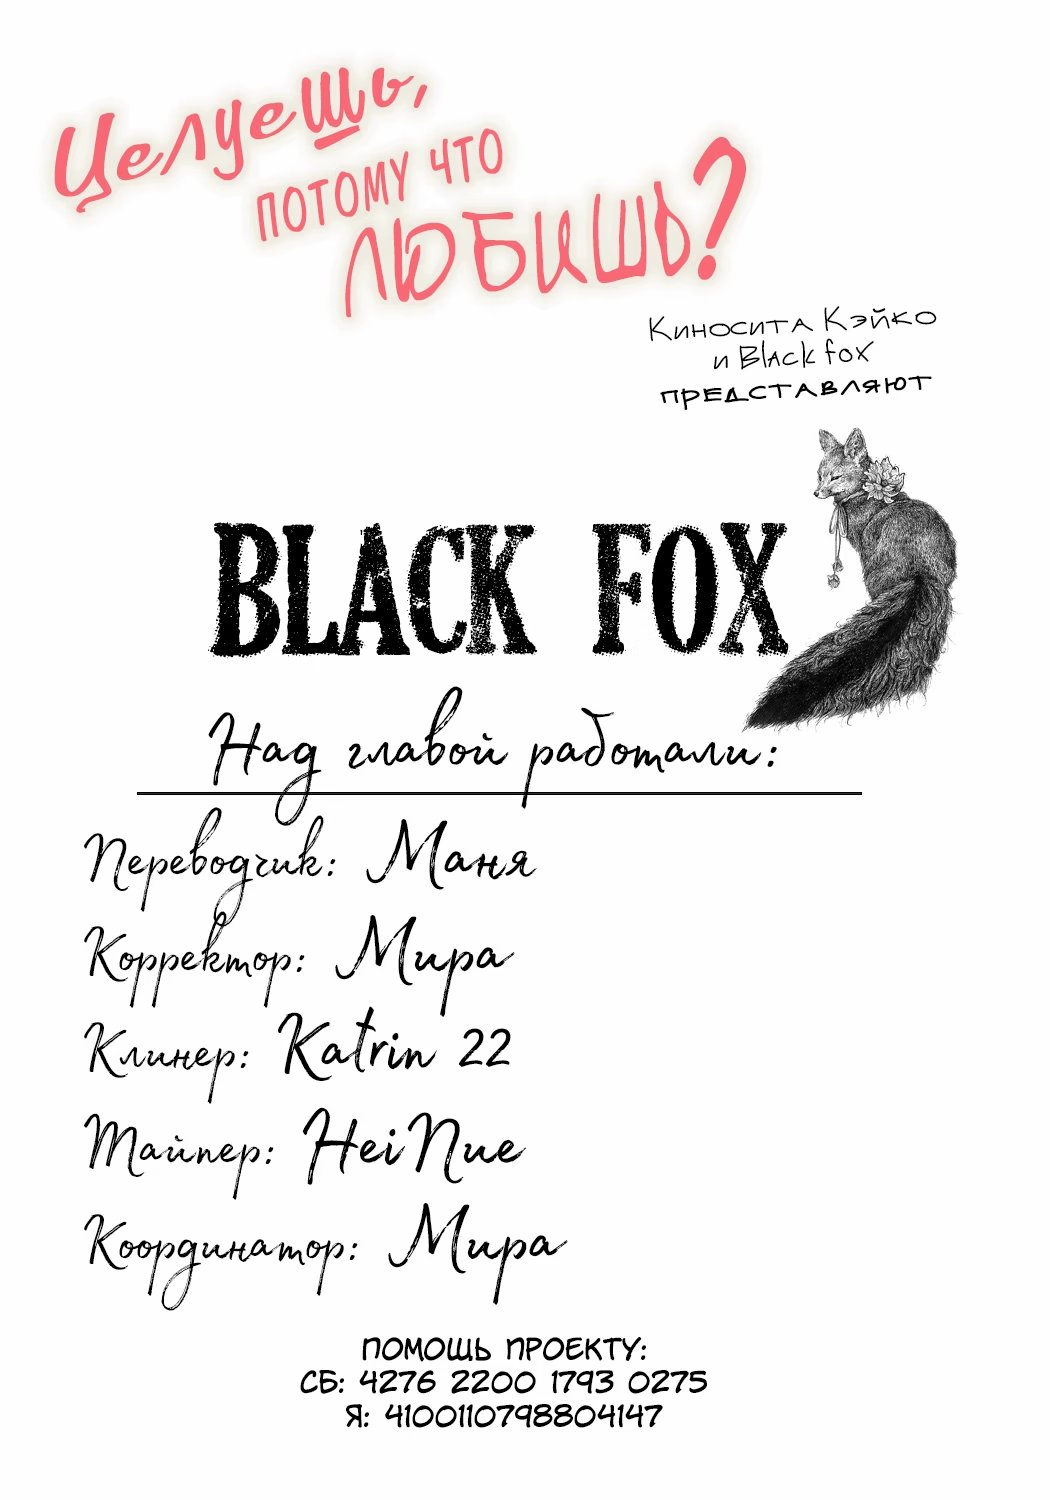 Целуешь,
потому что
любишь?
Киносита Кэйко
и Black fox
представляют
BLACK FOX
Над главой работали:
Переводчик: Маня
Корректор: Мира
Клинер: Katrin 22
Тайпер: HeiNue
Координатор: Мира
ПОМОЩЬ ПРОЕКТУ:
СБ: 4276 2200 1793 0275
Я: 4100110798804147